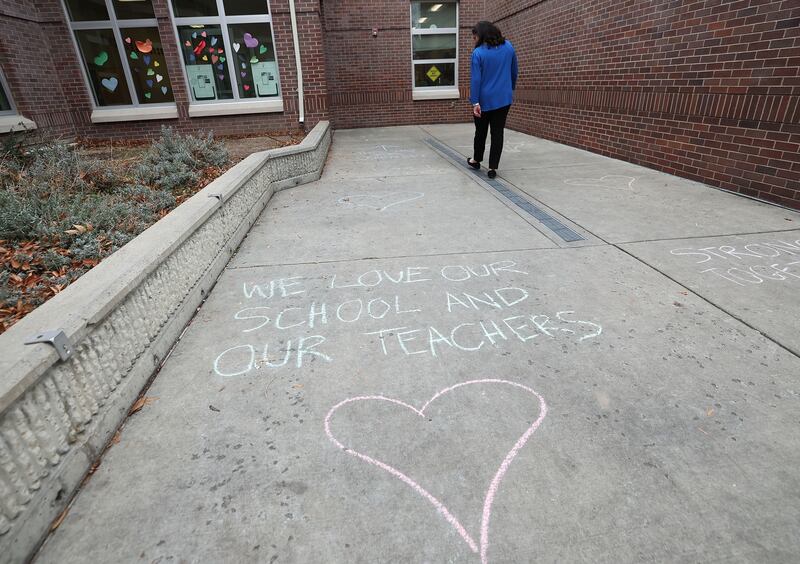 WE LOVE OUR
SCHOOL AND
OUR TEACHERS
STRONG